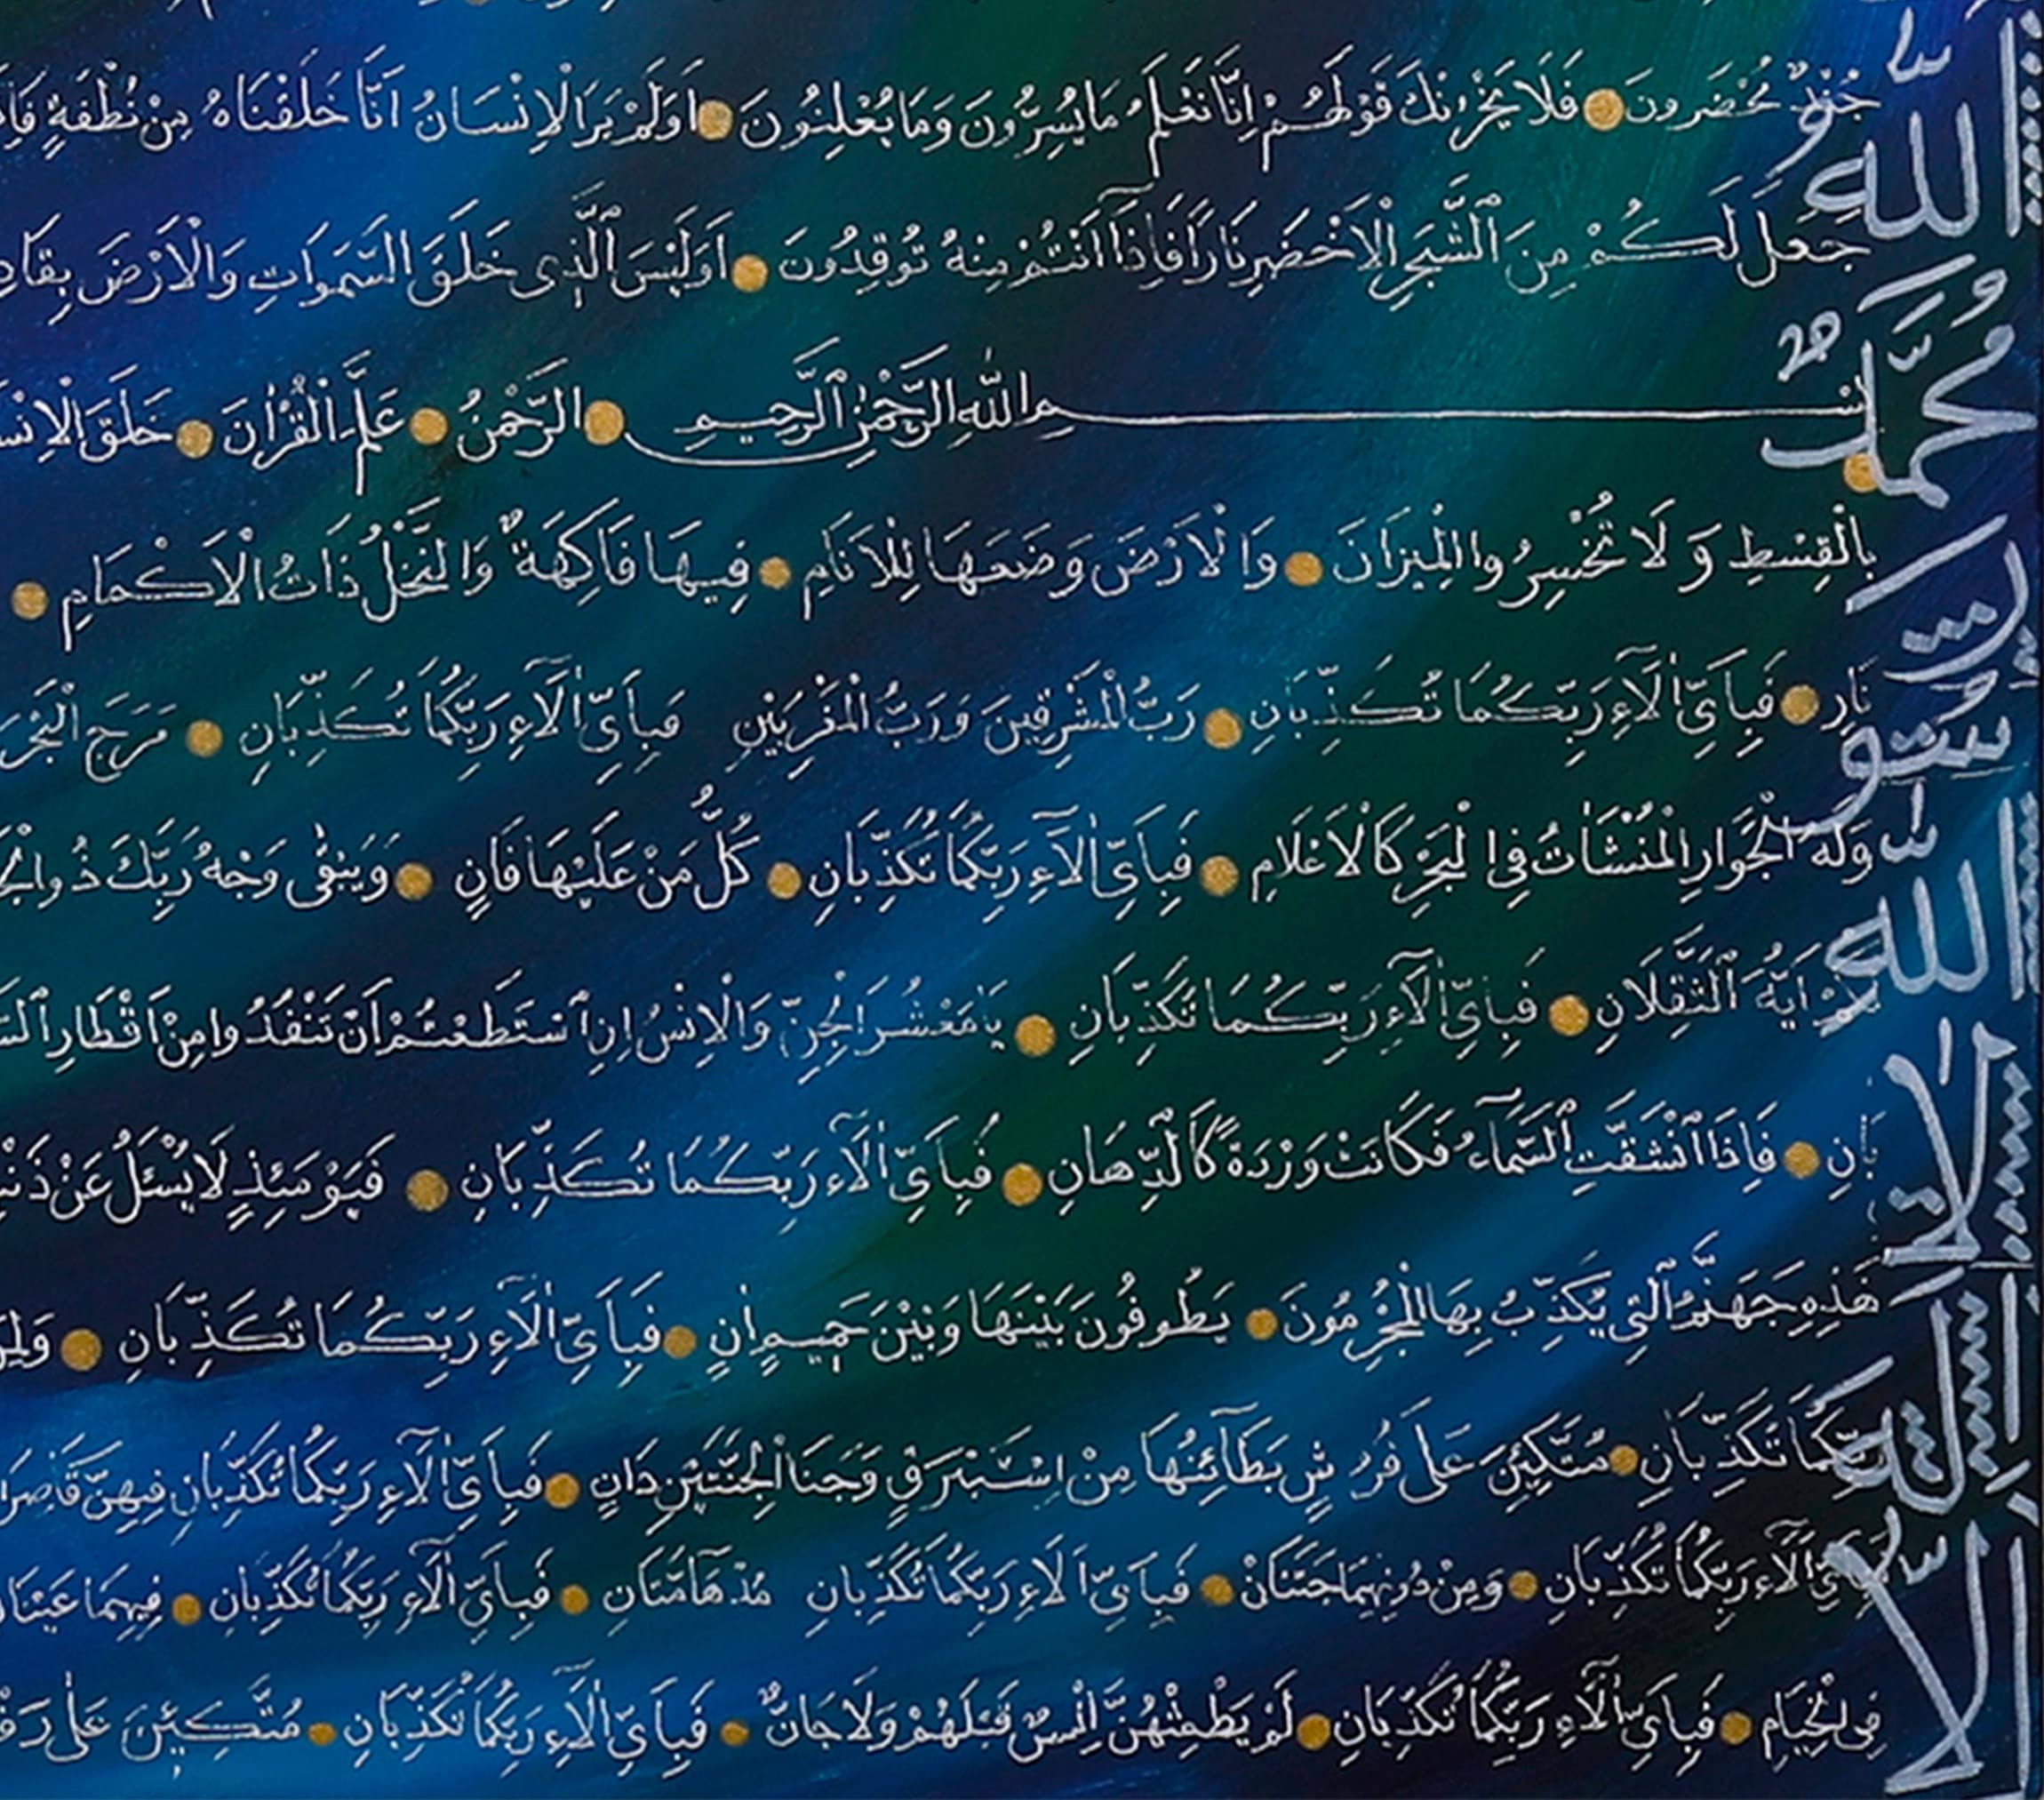 جُنْدٌ مُحْضَرُونَ فَلَا يَحْزُنْكَ قَوْلُهُمْ اِنَّا نَعْلَمُ مَا يُسِرُّونَ وَمَا يُعْلِنُونَ اَوَلَمْ يَرَ الْاِنْسَانُ اَنَّا خَلَقْنَاهُ مِنْ نُطْفَةٍ
جَعَلَ لَكُمْ مِنَ الشَّجَرِ الْاَخْضَرِ نَارًا فَاِذَٓا اَنْتُمْ مِنْهُ تُوقِدُونَ اَوَلَيْسَ الَّذِى خَلَقَ السَّمٰوَاتِ وَالْاَرْضَ
بِسْمِ اللّٰهِ الرَّحْمٰنِ الرَّحِيمِ الرَّحْمٰنُ عَلَّمَ الْقُرْاٰنَ خَلَقَ
بِالْقِسْطِ وَ لَا تُخْسِرُوا الْمِيزَانَ وَالْاَرْضَ وَضَعَهَا لِلْاَنَامِ فِيهَا فَاكِهَةٌ وَالنَّخْلُ ذَاتُ الْاَكْمَامِ
نَارٍ فَبِاَىِّ اٰلَٓاءِ رَبِّكُمَا تُكَذِّبَانِ رَبُّ الْمَشْرِقَيْنِ وَرَبُّ الْمَغْرِبَيْنِ فَبِاَىِّ اٰلَٓاءِ رَبِّكُمَا تُكَذِّبَانِ مَرَجَ
وَلَهُ الْجَوَارِ الْمُنْشَاٰتُ فِى الْبَحْرِ كَالْاَعْلَامِ فَبِاَىِّ اٰلَٓاءِ رَبِّكُمَا تُكَذِّبَانِ كُلُّ مَنْ عَلَيْهَا فَانٍ وَيَبْقٰى وَجْهُ رَبِّكَ ذُو
اَيُّهَ الثَّقَلَانِ فَبِاَىِّ اٰلَٓاءِ رَبِّكُمَا تُكَذِّبَانِ يَا مَعْشَرَ الْجِنِّ وَالْاِنْسِ اِنِ اسْتَطَعْتُمْ اَنْ تَنْفُذُوا مِنْ اَقْطَارِ
بَانِ فَاِذَا انْشَقَّتِ السَّمَٓاءُ فَكَانَتْ وَرْدَةً كَالدِّهَانِ فَبِاَىِّ اٰلَٓاءِ رَبِّكُمَا تُكَذِّبَانِ فَيَوْمَئِذٍ لَا يُسْئَلُ عَنْ
هٰذِهِ جَهَنَّمُ الَّتِى يُكَذِّبُ بِهَا الْمُجْرِمُونَ يَطُوفُونَ بَيْنَهَا وَبَيْنَ حَمِيمٍ اٰنٍ فَبِاَىِّ اٰلَٓاءِ رَبِّكُمَا تُكَذِّبَانِ
رَبِّكُمَا تُكَذِّبَانِ مُتَّكِئِينَ عَلٰى فُرُشٍ بَطَٓائِنُهَا مِنْ اِسْتَبْرَقٍ وَجَنَا الْجَنَّتَيْنِ دَانٍ فَبِاَىِّ اٰلَٓاءِ رَبِّكُمَا تُكَذِّبَانِ فِيهِنَّ
فَبِاَىِّ اٰلَٓاءِ رَبِّكُمَا تُكَذِّبَانِ وَمِنْ دُونِهِمَا جَنَّتَانِ فَبِاَىِّ اٰلَاءِ رَبِّكُمَا تُكَذِّبَانِ مُدْهَٓامَّتَانِ فَبِاَىِّ اٰلَٓاءِ رَبِّكُمَا تُكَذِّبَانِ فِيهِمَا
فِى الْخِيَامِ فَبِاَىِّ اٰلَٓاءِ رَبِّكُمَا تُكَذِّبَانِ لَمْ يَطْمِثْهُنَّ اِنْسٌ قَبْلَهُمْ وَلَا جَانٌّ فَبِاَىِّ اٰلَٓاءِ رَبِّكُمَا تُكَذِّبَانِ مُتَّكِئِينَ عَلٰى
اللّٰه
مُحَمَّدٌ
رَسُولُ
اللّٰه